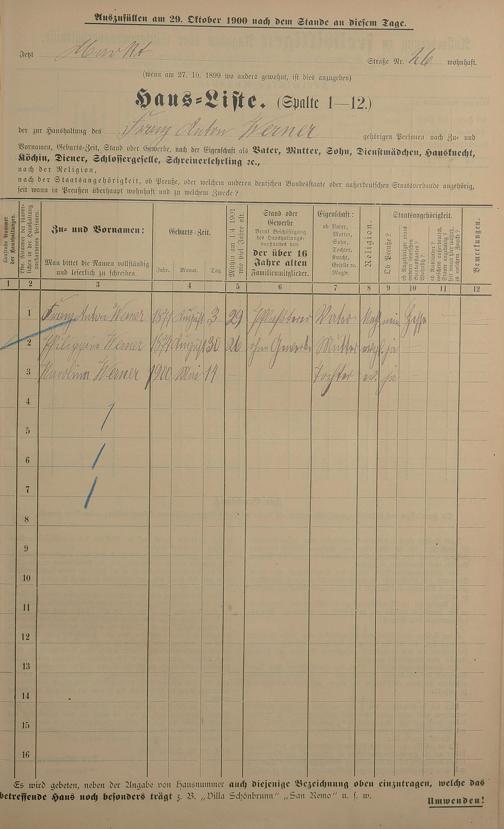 Auszufüllen am 29. Oktober 1900 nach dem Stande an diesem Tage.
Jetzt Markt Straße Nr. 26 wohnhaft.
(wenn am 27. 10. 1899 wo anders gewohnt, ist dies anzugeben)
Haus-Liste. (Spalte 1—12.)
der zur Haushaltung des Franz Anton Werner gehörigen Personen nach Zu- und
Vornamen, Geburts-Zeit, Stand oder Gewerbe, nach der Eigenschaft als Vater, Mutter, Sohn, Dienstmädchen, Hausknecht,
Köchin, Diener, Schlossergeselle, Schreinerlehrling ꝛc.,
nach der Religion,
nach der Staatsangehörigkeit, ob Preuße, oder welchem anderen deutschen Bundesstaate oder außerdeutschen Staatsverbande angehörig,
seit wann in Preußen überhaupt wohnhaft und zu welchem Zwecke?
Zu- und Vornamen:
Man bittet die Namen vollständig und leserlich zu schreiben.
Geburts-Zeit.
Jahr. Monat. Tag.
Wohin am 1.4.1901 wie viel Jahre alt.
Stand oder Gewerbe
der über 16 Jahre alten Familienmitglieder.
Eigenschaft:
ob Vater, Mutter, Sohn, Tochter, Knecht, Geselle u. Magd.
Religion
Staatsangehörigkeit.
Ob Preuße?
Bemerkungen.
1 2 3 4 5 6 7 8 9 10 11 12
1 Franz Anton Werner 1871 August 3 29 Pflasterer Vater Kath nein Hesse
2 Werner August 30 26 ohne Gewerbe Mutter ev. ja
3 Karolina Werner 1900 Mai 14 Tochter ev. ja
4
5
6
7
8
9
10
11
12
13
14
15
16
Es wird gebeten, neben der Angabe von Hausnummer auch diejenige Bezeichnung oben einzutragen, welche das
betreffende Haus noch besonders trägt z. B. „Villa Schönbrunn" „San Remo" u. s. w.
Umwenden!